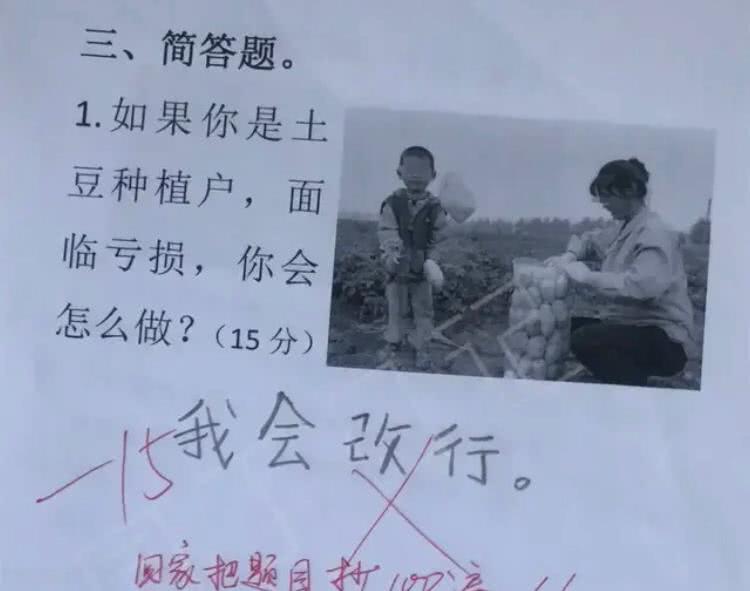 三、简答题。
1.如果你是土
豆种植户，面
临亏损，你会
怎么做？(15分)
我会改行。
-15
回家把题目抄100遍